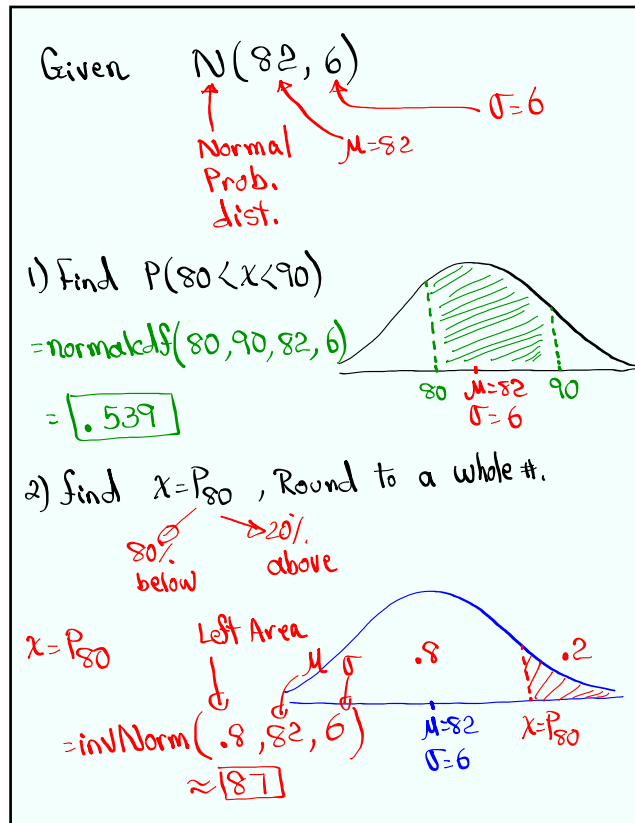 Given N(82, 6)
σ=6
μ=82
Normal
Prob.
dist.
1) Find P(80<x<90)
=normalcdf(80,90,82,6)
= .539
80 μ=82 90
σ=6
2) find x=P80 , Round to a whole #.
80% below
20% above
x=P80
Left Area
μ σ
=invNorm(.8,82,6)
≈ 87
.8 .2
μ=82 x=P80
σ=6